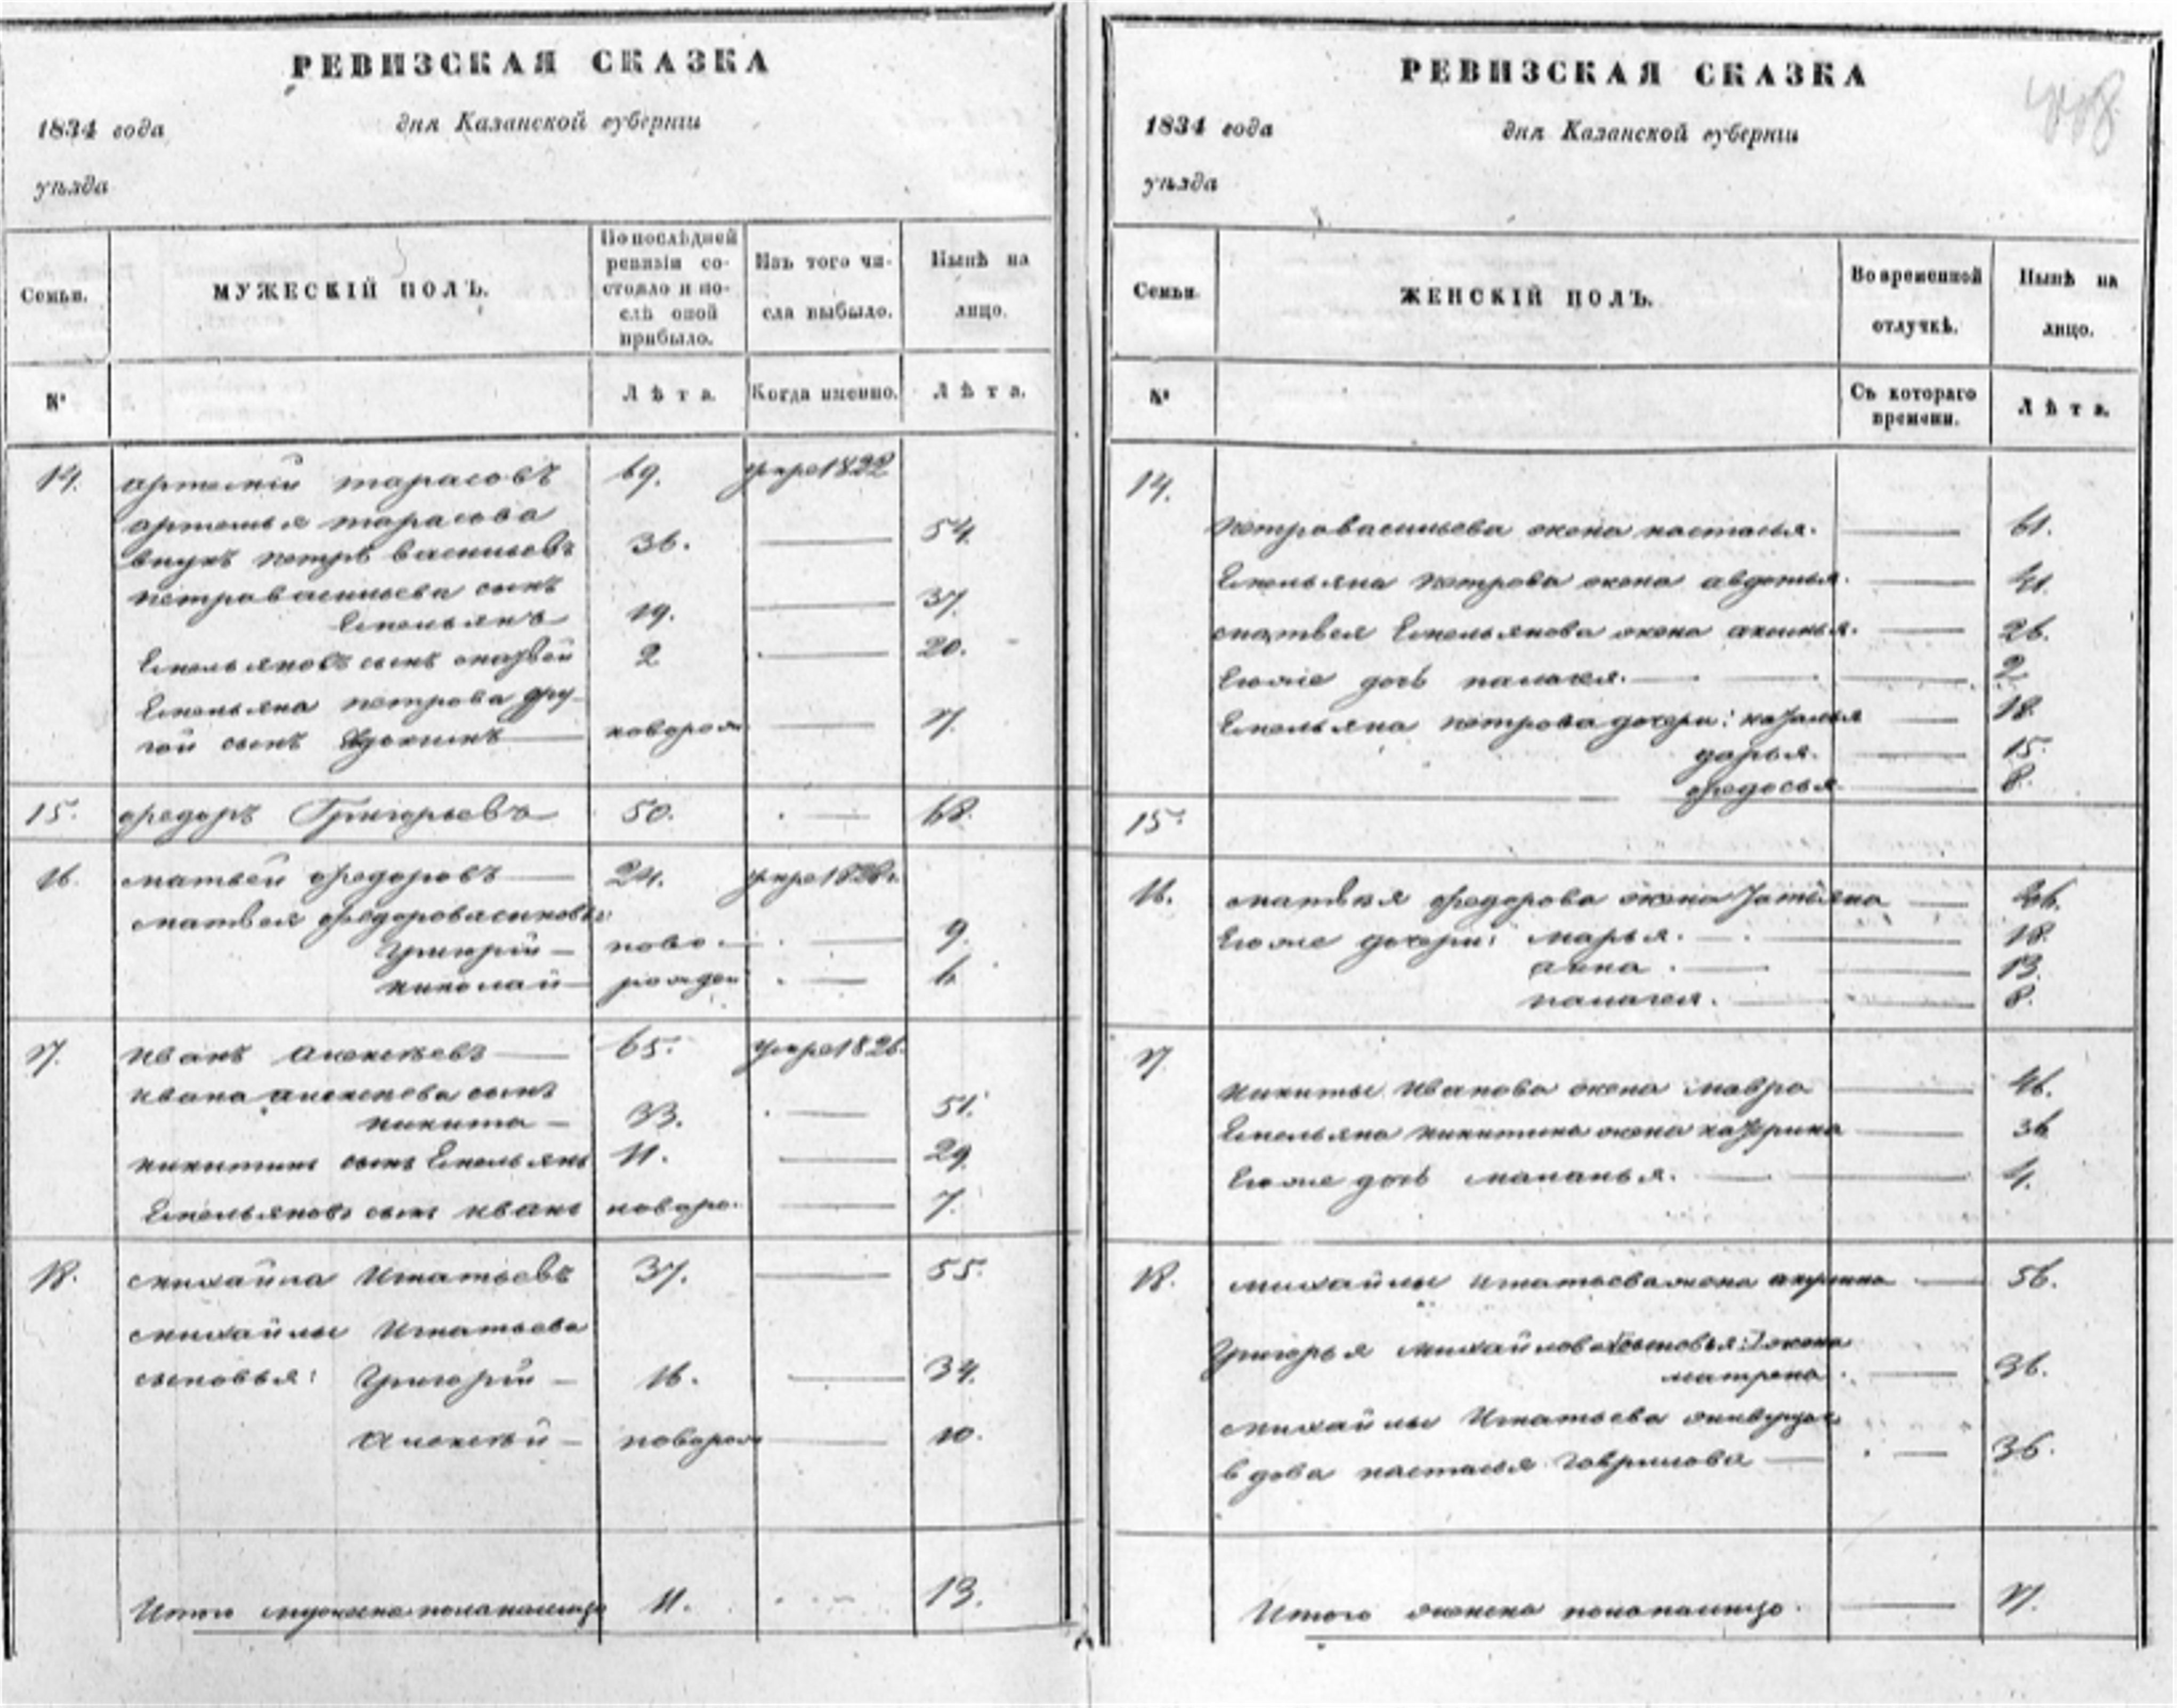 РЕВИЗСКАЯ СКАЗКА
1834 года дня Казанской губерніи
уѣзда
Семьи. МУЖЕСКІЙ ПОЛЪ. По послѣдней ревизіи состояло и послѣ оной прибыло. Изъ того числа выбыло. Нынѣ на лицо.
№ Лѣта. Когда именно. Лѣта.
14. артемій тарасовъ 69. умре 1822
артемья тарасова
внукъ петръ васильевъ 36. 54.
петра васильева сынъ
Емельянъ 19. 37.
Емельяновъ сынъ матвей 2 20.
Емельяна петрова дру-
гой сынъ Евдокимъ новорож 17.
15. федоръ Григорьевъ 50. 68.
16. матвей федоровъ 24. умре
матвея федорова сыновья:
Григорій ново- 9.
николай рожден 6.
17. иванъ алексеевъ 65. умре 1826.
ивана алексеева сынъ
никита 33. 51.
никитинъ сынъ Емельянъ 11. 29.
Емельяновъ сынъ иванъ новоро. 7.
18. михайла Игнатьевъ 37. 55.
михайлы Игнатьева
сыновья: Григорій 16. 34.
алексей новорож 10.
Итого мужеска пола налицо 11. 13.
РЕВИЗСКАЯ СКАЗКА
1834 года дня Казанской губерніи
уѣзда
Семьи. ЖЕНСКІЙ ПОЛЪ. Во временной отлучкѣ. Нынѣ на лицо.
№ Съ котораго времени. Лѣта.
14.
петра васильева жена настасья. 61.
Емельяна петрова жена авдотья. 41.
матвея Емельянова жена аксинья. 26.
Его же дочь палагея. 2.
Емельяна петрова дочери: наталья 18.
дарья. 15.
федосья 8.
15.
16. матвея федорова жена татьяна 46.
Его же дочери: марья. 18.
анна. 13.
палагея. 8.
17.
никиты иванова жена мавра 46.
Емельяна никитина жена катерина 36
Его же дочь маланья. 4.
18. михайлы игнатьева жена 56.
Григорья михайлова жена
матрена. 36.
михайлы Игнатьева
вдова настасья гаврилова 36.
Итого женска пола налицо. 17.